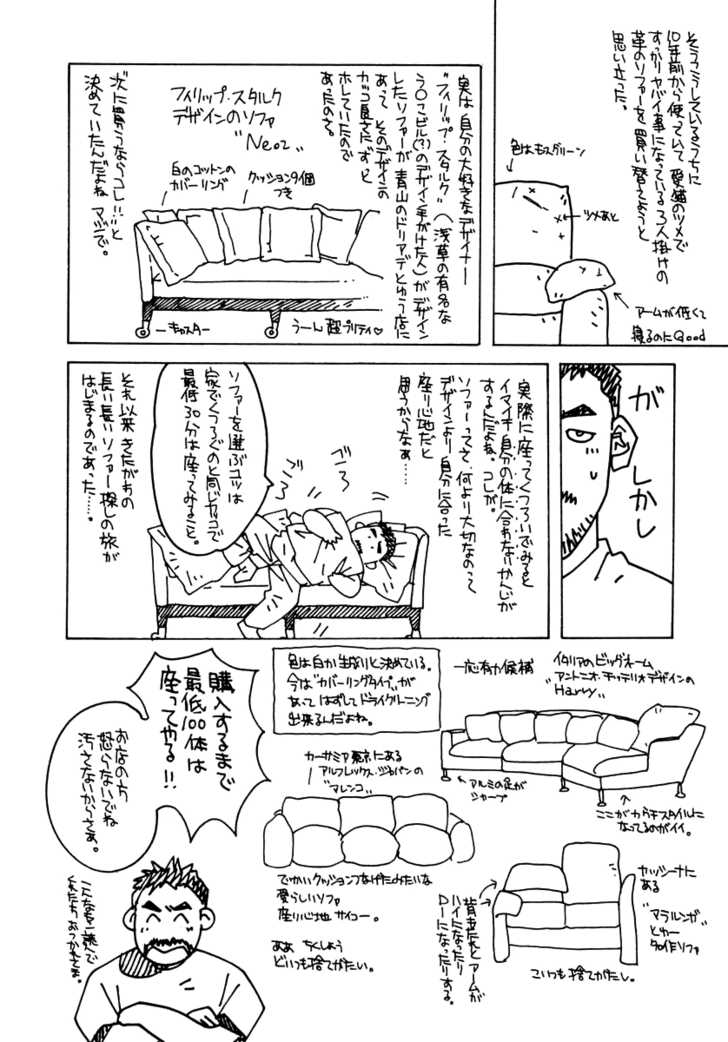 そうこうしているうちに
10年前から使っていて愛猫のツメで
すっかりヤバイ事になっている3人掛けの
革のソファーを買い替えようと
思い立った。
色はモスグリーン
ツメあと
アームが低くて
寝るのにGood
実は自分の大好きなデザイナー
"フィリップ・スタルク"(浅草の有名な
う〇こビル(?)のデザイン手がけた人)がデザイン
したソファーが青山のドリアデとゆう店に
あって そのデザインの
カッコ良さにずっと
ホレていたので
あったのさ。
フィリップ・スタルク
デザインのソファ
"Neoz"
白のコットンの
カバーリング
クッション4個
つき
キャスター
うーん超プリティ♡
次に買うならコレ!!と
決めていたんだよね マジで。
が
しかし
実際に座ってくつろいでみると
イマイチ自分の体に合わないかんじが
するんだよね。コレが。
ソファーってさ、何より大切なのって
デザインより自分に合った
座り心地だと
思うからなぁ……
ごろ
ごろ
ソファーを選ぶコツは
家でくつろぐのと同じカッコで
最低30分は座ってみること。
それ以来きたがわの
長い長いソファー探しの旅が
はじまるのであった……。
購入するまで
最低100体は
座ってやる!!
お店の方
怒らないでね
汚さないからさぁ。
色は白か生成りと決めている。
今は"カバーリングタイプ"が
あってはずしてドライクリーニング
出来るんだよね。
一応有力候補
イタリアのビッグネーム
"アントニオ・チッテリオデザインの
Harry"
アルミの足が
シャープ
ここがカウチスタイルに
なってるのがイイ。
カーサミア東京にある
アルフレックス・ジャパンの
"マレンコ"
でかいクッションつなげたみたいな
愛らしいソファ
座り心地サイコー。
ああ ちくしょう
どいつも捨てがたい。
カッシーナに
ある
"マラルンガ"
とゆー
名作ソファ
背もたれとアームが
ハイになったり
ローになったりする。
こいつも捨てがたし。